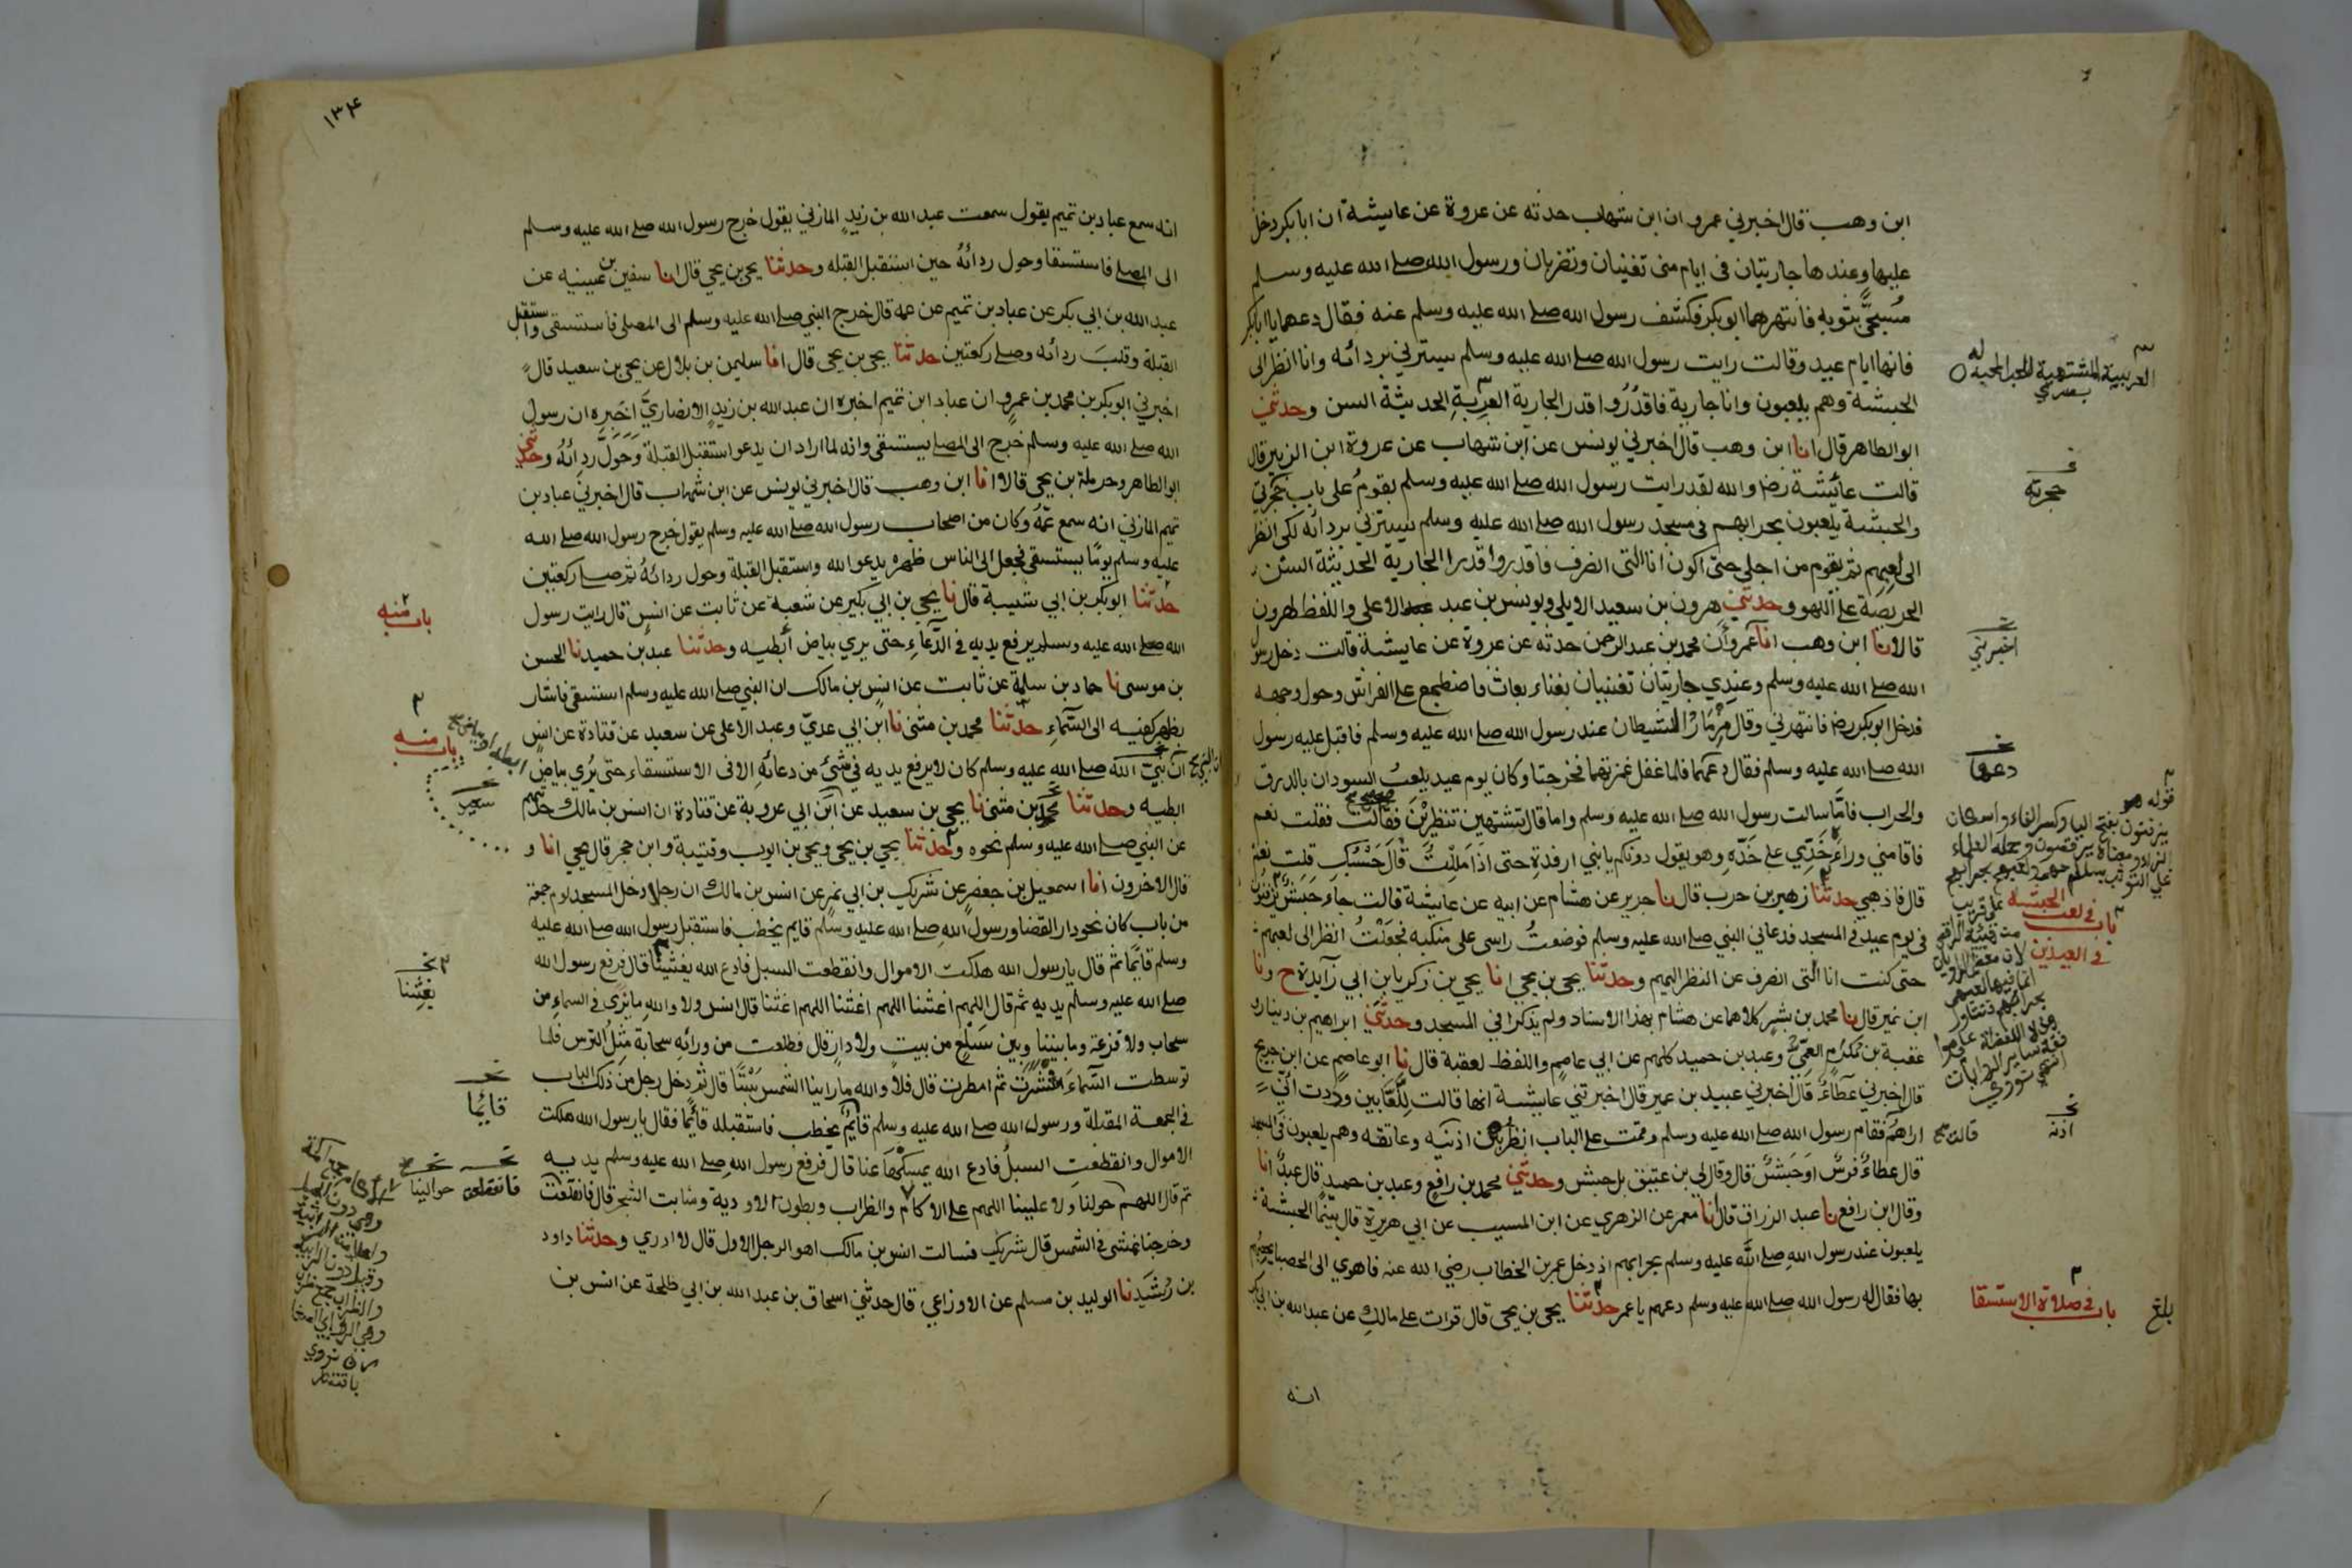 ابن وهب قال اخبرني عمرو ان ابن شهاب حدثه عن عروة عن عايشة ان ابا بكر دخل
عليها وعندها جاريتان في ايام منى تغنيان وتضربان ورسول الله صلى الله عليه وسلم
مُسَجًّى بثوبه فانتهرهما ابو بكر فكشف رسول الله صلى الله عليه وسلم عنه فقال دعهما يا ابا بكر
فانها ايام عيد وقالت رايت رسول الله صلى الله عليه وسلم يسترني بردائه وانا انظر الى
الحبشة وهم يلعبون وانا جارية فاقدُرُوا قدر الجارية العَرِبةِ الحديثة السن وحدثني
ابو الطاهر قال انا ابن وهب قال اخبرني يونس عن ابن شهاب عن عروة ابن الزبير قال
قالت عائشة رضـ والله لقد رايت رسول الله صلى الله عليه وسلم يقومُ على باب حجرتي
والحبشة يلعبون بحرابهم في مسجد رسول الله صلى الله عليه وسلم يسترني بردائه لكي انظر
الى لعبهم ثم يقوم من اجلي حتى اكون انا التي انصرف فاقدروا قدر الجارية الحديثة السن
الحريصة على اللهو وحدثني هرون بن سعيد الايلي ويونس بن عبد الاعلى واللفظ لهرون
قالا نا ابن وهب انا عمرو أن محمد بن عبد الرحمن حدثه عن عروة عن عايشة قالت دخل رسول
الله صلى الله عليه وسلم وعندي جاريتان تغنيان بغناء بعاث فاضطجع على الفراش وحول وجهه
فدخل ابو بكر رضـ فانتهرني وقال مِزْمَارُ الشيطان عند رسول الله صلى الله عليه وسلم فاقبل عليه رسول
الله صلى الله عليه وسلم فقال دعهما فلما غفل غمزتهما فخرجتا وكان يوم عيد يلعبُ السودان بالدرق
والحراب فامَّا سالت رسول الله صلى الله عليه وسلم واما قال تشتهين تنظرين فقالت فقلت نعم
فاقامني وراءَهُ خَدِّي على خَدِّهِ وهو يقول دونكم يا بني ارفدة حتى اذا مَلِلْتُ قال حَسْبُكِ قلت نعم
قال فاذهبي حدثنا زهير بن حرب قال نا جرير عن هشام عن ابيه عن عايشة قالت جاء حبش يزفنون
في يوم عيد في المسجد فدعاني النبي صلى الله عليه وسلم فوضعتُ راسي على منكبه فجعلتُ انظر الى لعبهم
حتى كنت انا التي انصرف عن النظر اليهم وحدثنا يحيى بن يحيى انا يحيى بن زكريا بن ابي زايدة ح ونا
ابن نمير قال نا محمد بن بشر كلاهما عن هشام بهذا الاسناد ولم يذكرا في المسجد وحدثني ابراهيم بن دينار
عقبة بن مُكرَم العَمِّيُّ وعبد بن حميد كلهم عن ابي عاصم واللفظ لعقبة قال نا ابو عاصم عن ابن جريج
قال اخبرني عطاءٌ قال اخبرني عبيد بن عمير قال اخبرتني عايشة انها قالت لِلَعَّابين وددت اني
اراهم فقام رسول الله صلى الله عليه وسلم وقمت على الباب انظر بين اذنيه وعاتقه وهم يلعبون في المسجد
قال عطاءٌ فرسٌ او حَبَشٌ قال وقال لي بن عتيق بل حبش وحدثني محمد بن رافع وعبد بن حميد قال عبدٌ انا
وقال ابن رافع نا عبد الرزاق قال انا معمر عن الزهري عن ابن المسيب عن ابي هريرة قال بينما الحبشة
يلعبون عند رسول الله صلى الله عليه وسلم بحرابهم اذ دخل عمر بن الخطاب رضي الله عنه فاهوى الى الحصبا يحصبهم
بها فقال له رسول الله صلى الله عليه وسلم دعهم يا عمر حدثنا يحيى بن يحيى قال قرات على مالكٍ عن عبد الله بن ابي بكر
انه
حجرته
اخبرني
دعها
باب في لعب الحبشة
في العيدين
اذنه
قالت صح
باب في صلاة الاستسقا
بلغ
١٣٤
انه سمع عباد بن تميم يقول سمعت عبد الله بن زيدٍ المازني يقول خرج رسول الله صلى الله عليه وسلم
الى المصلى فاستسقا وحول ردائهُ حين استقبل القبله وحدثنا يحيى بن يحيى قال انا سفين بن عيينه عن
عبد الله بن ابي بكر عن عباد بن تميم عن عمه قال خرج النبي صلى الله عليه وسلم الى المصلى فاستسقى واستقبل
القبلة وقلبَ ردائه وصلى ركعتين حدثنا يحيى بن يحيى قال انا سليمن بن بلال عن يحيى بن سعيد قال
اخبرني ابو بكر بن محمد بن عمرو ان عباد ابن تميم اخبره ان عبد الله بن زيدٍ الانصاريَّ اخبره ان رسول
الله صلى الله عليه وسلم خرج الى المصلى يستسقى وانه لما اراد ان يدعو استقبل القبلة وَحَوَلَ ردائهُ وحدثني
ابو الطاهر وحرملة بن يحيى قالا انا ابن وهب قال اخبرني يونس عن ابن شهاب قال اخبرني عباد بن
تميم المازني انه سمع عَمَّهُ وكان من اصحاب رسول الله صلى الله عليه وسلم يقول خرج رسول الله صلى الله
عليه وسلم يومًا يستسقي فجعل الى الناس ظهره يدعو الله واستقبل القبلة وحول ردائهُ ثم صلى ركعتين
حدثنا ابو بكر بن ابي شيبة قال نا يحيى بن ابي بكير عن شعبة عن ثابت عن انس قال رايت رسول
الله صلى الله عليه وسلم يرفع يديه في الدُّعاءِ حتى يرى بياض أبطيه وحدثنا عبد بن حميد نا الحسن
بن موسى نا حماد بن سلمة عن ثابت عن انس بن مالك ان النبي صلى الله عليه وسلم استسقى فاشار
بظهر كفيه الى السَّماءِ حدثنا محمد بن مثنى نا ابن ابي عديّ وعبد الاعلى عن سعيد عن قتادة عن انس
ان نبيّ الله صلى الله عليه وسلم كان لا يرفع يديه في شئٍ من دعائه الا في الاستسقاء حتى يُرى بياض
ابطيه وحدثنا محمد بن مثنى نا يحيى بن سعيد عن ابن ابي عروبة عن قتادة ان انس بن مالك حدثهم
عن النبي صلى الله عليه وسلم نحوه وحدثنا يحيى بن يحيى ويحيى بن ايوب وقتيبة وابن حجر قال يحيى انا و
قال الاخرون انا اسمعيل بن جعفر عن شريك بن ابي نمر عن انس بن مالك ان رجلا دخل المسجد يوم جمعة
من باب كان نحو دار القضا ورسول الله صلى الله عليه وسلم قايم يخطب فاستقبل رسول الله صلى الله عليه
وسلم قائمًا ثم قال يا رسول الله هلكت الاموال وانقطعت السبل فادع الله يغثينا قال فرفع رسول الله
صلى الله عليه وسلم يديه ثم قال اللهم اغثنا اللهم اغثنا اللهم اغثنا قال انس ولا والله ما نرى في السماء من
سحاب ولا قزعة وما بيننا وبين سَلْعٍ من بيت ولا دارٍ قال فطلعت من ورائه سحابة مثلُ الترس فلما
توسطت السَّماءَ انتشرت ثم امطرت قال فلا والله ما راينا الشمس سَبْتًا قال ثم دخل رجل من ذلك الباب
في الجمعة المقبلة ورسول الله صلى الله عليه وسلم قائمٌ يخطب فاستقبله قائمًا فقال يا رسول الله هلكت
الاموال وانقطعتِ السبلُ فادع الله يمسكْها عنا قال فرفع رسول الله صلى الله عليه وسلم يديه
ثم قال اللهم حولنا ولا علينا اللهم على الاكام والظراب وبطون الاودية ومنابت الشجر قال فانقلعت
وخرجنا نمشي في الشمس قال شريك فسالت انس بن مالك اهو الرجل الاول قال لا ادري وحدثنا داود
بن رُشَيد نا الوليد بن مسلم عن الاوزاعي قال حدثني اسحاق بن عبد الله بن ابي طلحة عن انس بن
باب منه
باب منه
يغثنا
قايما
حوالينا